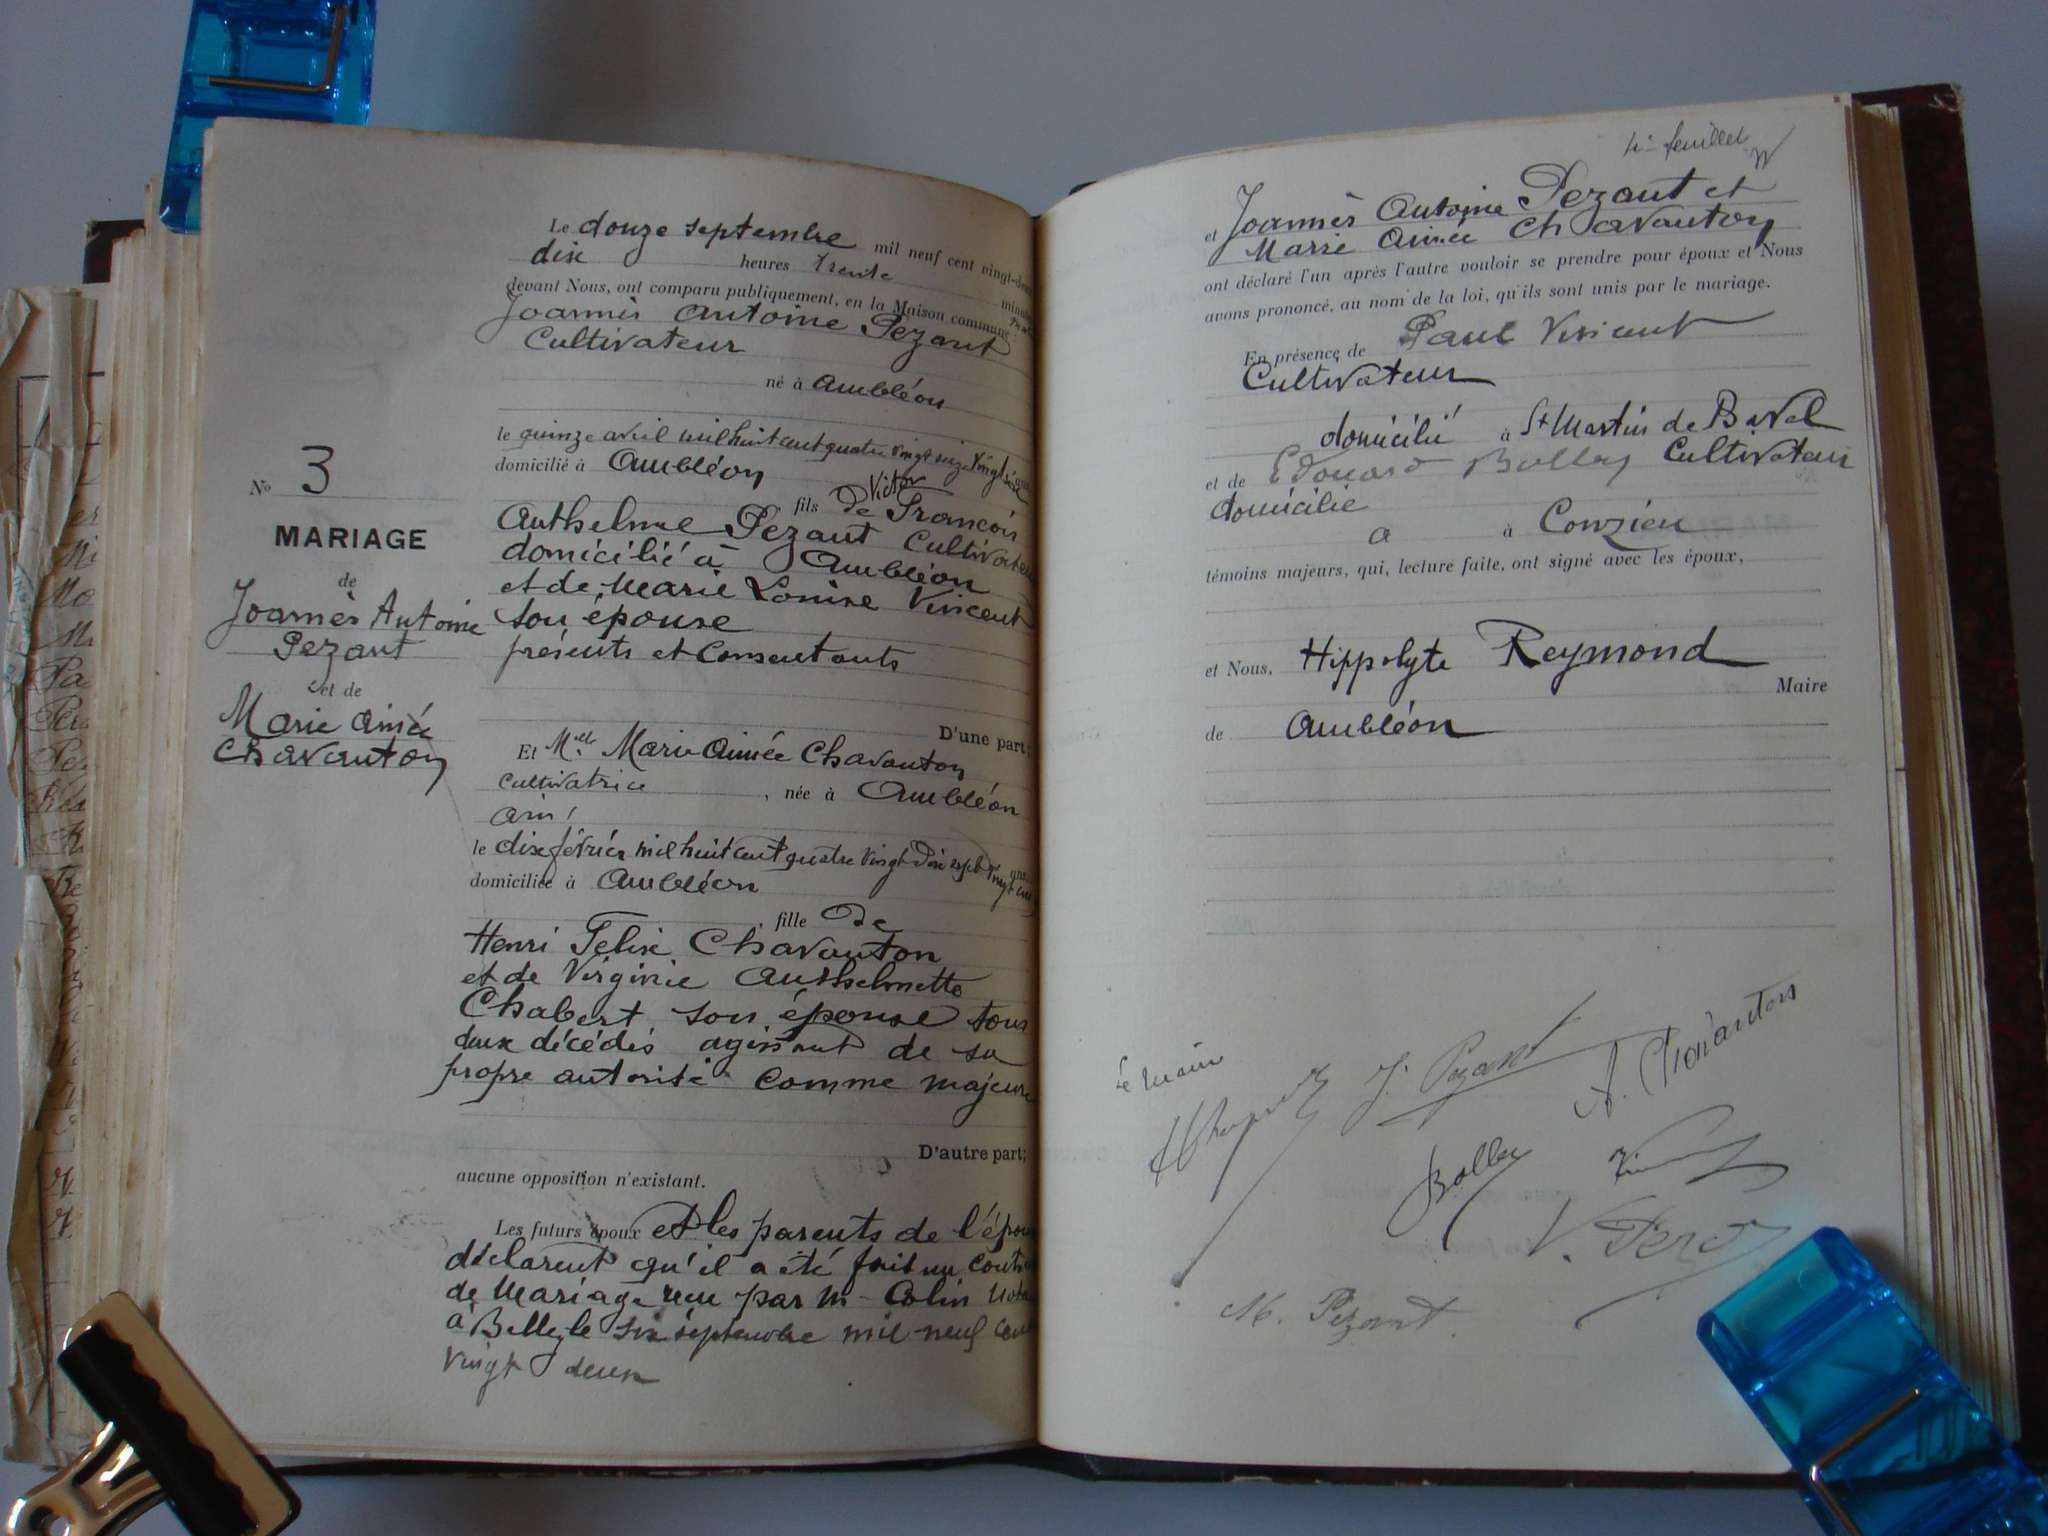 N° 3
MARIAGE
de
Joannès Antoine
Pezant
et de
Marie Aimée
Chavanton
Le douze septembre mil neuf cent vingt-deux
dix heures trente minutes
devant Nous, ont comparu publiquement, en la Maison commune
Joannès Antoine Pezant
Cultivateur
né à Ambléon
le quinze avril mil huit cent quatre vingt seize vingt six ans
domicilié à Ambléon
fils de Victor François
Anthelme Pezant Cultivateur
domicilié à Ambléon
et de Marie Louise Vincent
son épouse
présents et consentants
D'une part;
Et Melle Marie Aimée Chavanton
cultivatrice, née à Ambléon
Ain
le dix février mil huit cent quatre vingt dix sept vingt cinq ans
domiciliée à Ambléon
fille de
Henri Felix Chavanton
et de Virginie Anthelmette
Chabert son épouse tous
deux décédés agissant de sa
propre autorité comme majeure
D'autre part;
aucune opposition n'existant.
Les futurs époux et les parents de l'époux
déclarent qu'il a été fait un contrat
de Mariage reçu par Me Colin Notaire
à Belley le six septembre mil neuf cent
vingt deux
4e feuillet
et Joannès Antoine Pezant et
Marie Aimée Chavanton
ont déclaré l'un après l'autre vouloir se prendre pour époux et Nous
avons prononcé, au nom de la loi, qu'ils sont unis par le mariage.
En présence de Paul Vincent
Cultivateur
domicilié à St Martin de Bavel
et de Edouard Bolley Cultivateur
domicilié
a à Conzieu
témoins majeurs, qui, lecture faite, ont signé avec les époux,
et Nous, Hippolyte Reymond
Maire
de Ambléon
Le maire
J. Pezant
A. Chavanton
Bolley
V. Peza
M. Pezant